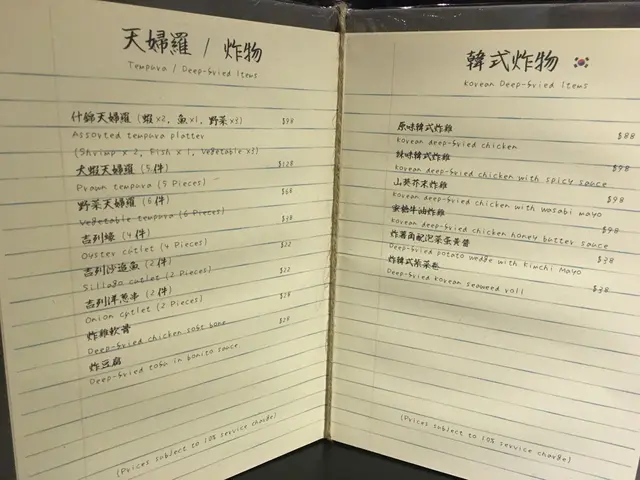 天婦羅 / 炸物
Tempura / Deep-fried Items
什錦天婦羅 (蝦x2, 魚x1, 野菜x3) $98
Assorted tempura platter
(Shrimp x 2, Fish x 1, Vegetable x3)
大蝦天婦羅 (5件) $128
Prawn tempura (5 Pieces)
野菜天婦羅 (6件) $68
Vegetable tempura (6 Pieces)
吉列蠔 (4件) $38
Oyster cutlet (4 Pieces)
吉列沙追魚 (2件) $22
Sillago cutlet (2 Pieces)
吉列洋蔥串 (2件) $22
Onion cutlet (2 Pieces)
炸雞軟骨 $28
Deep-fried chicken soft bone
炸豆腐 $28
Deep-fried tofu in bonito sauce
(Prices subject to 10% service charge)
韓式炸物
Korean Deep-fried Items
原味韓式炸雞 $88
Korean deep-fried chicken
辣味韓式炸雞 $98
Korean deep-fried chicken with spicy sauce
山葵芥末炸雞 $98
Korean deep-fried chicken with wasabi mayo
蜜糖牛油炸雞 $98
Korean deep-fried chicken honey butter sauce
炸薯角配泡菜蛋黃醬 $38
Deep-fried potato wedge with Kimchi Mayo
炸韓式紫菜卷 $38
Deep-fried Korean seaweed roll
(Prices subject to 10% service charge)